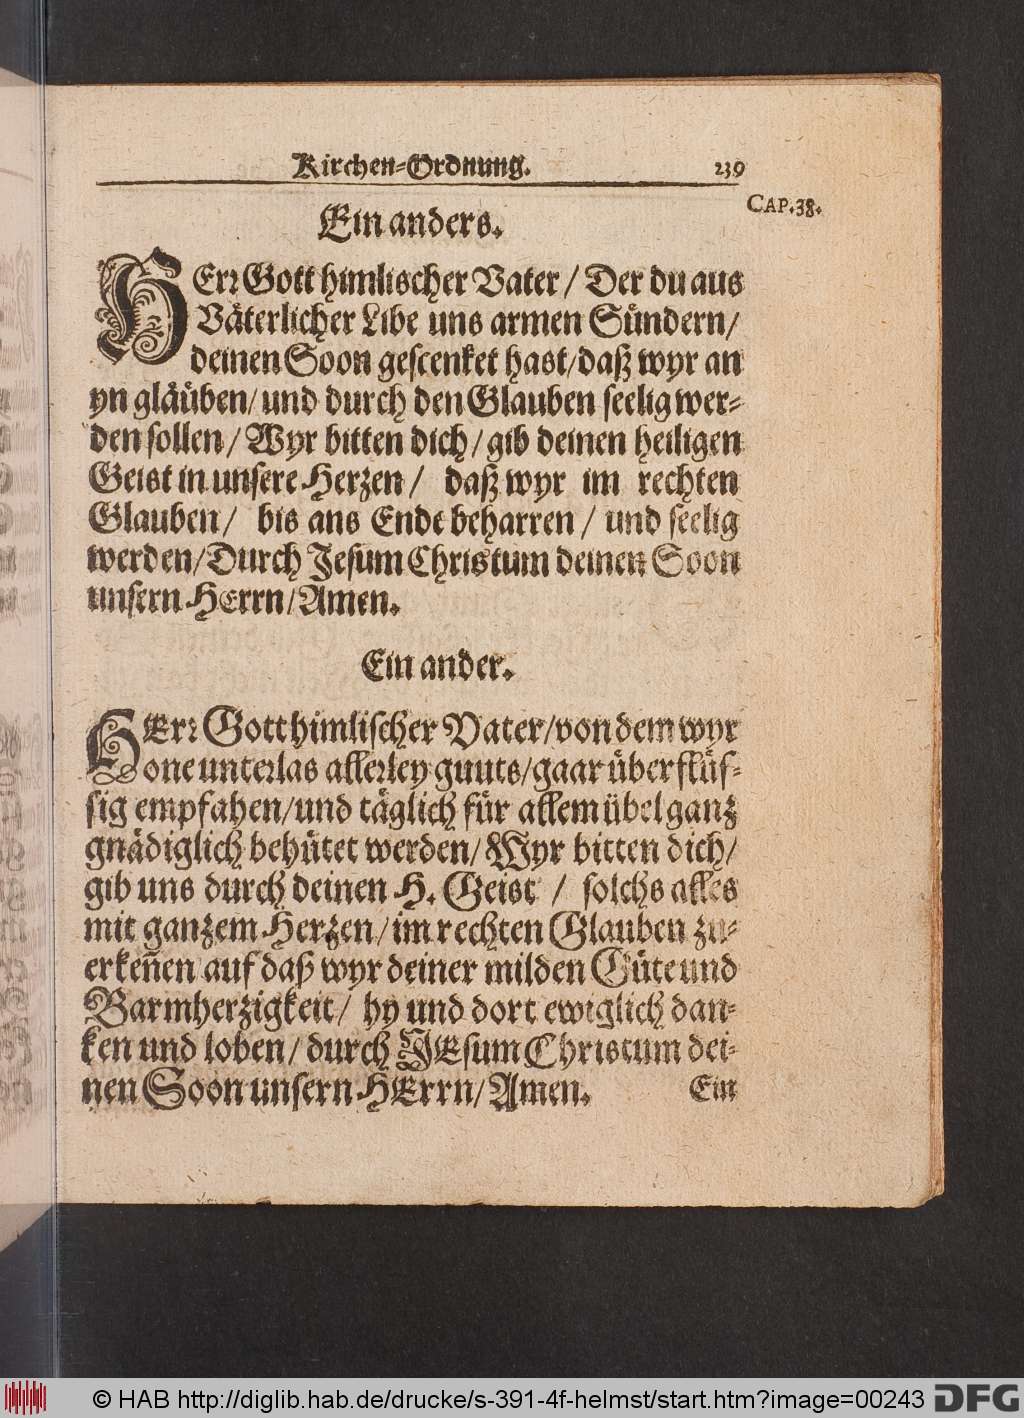 Kirchen-Ordnung. 239
CAP. 38.
Ein anders.
HErr Gott himlischer Vater / Der du aus
Väterlicher Libe uns armen Sündern /
deinen Soon gescenket hast / daß wyr an
yn gläüben / und durch den Glauben seelig wer-
den sollen / Wyr bitten dich / gib deinen heiligen
Geist in unsere Herzen / daß wyr im rechten
Glauben / bis ans Ende beharren / und seelig
werden / Durch Jesum Christum deinen Soon
unsern HErrn / Amen.
Ein ander.
HErr Gott himlischer Vater / von dem wyr
one unterlas allerley guuts / gaar überflüs-
sig empfahen / und täglich für allem übel ganz
gnädiglich behütet werden / Wyr bitten dich /
gib uns durch deinen H. Geist / solchs alles
mit ganzem Herzen / im rechten Glauben zu-
erkeñen auf daß wyr deiner milden Güte und
Barmherzigkeit / hy und dort ewiglich dan-
ken und loben / durch JEsum Christum dei-
nen Soon unsern HErrn / Amen. Ein
© HAB http://diglib.hab.de/drucke/s-391-4f-helmst/start.htm?image=00243 DFG